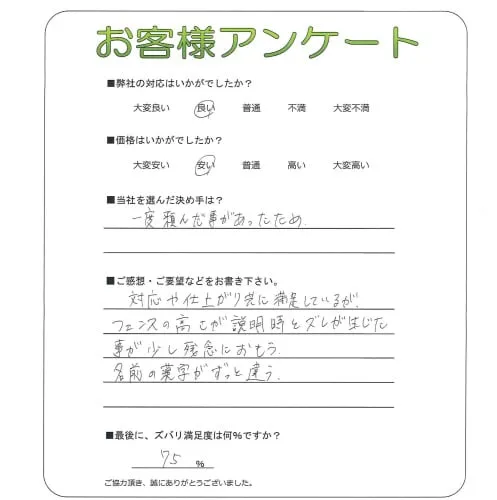 お客様アンケート
■弊社の対応はいかがでしたか？
大変良い 良い 普通 不満 大変不満
■価格はいかがでしたか？
大変安い 安い 普通 高い 大変高い
■当社を選んだ決め手は？
一度頼んだ事があったため.
■ご感想・ご要望などをお書き下さい。
対応や仕上がり共に満足しているが、
フェンスの高さが説明時とズレが生じた
事が少し残念におもう.
名前の漢字がずっと違う.
■最後に、ズバリ満足度は何％ですか？
75 %
ご協力頂き、誠にありがとうございました。